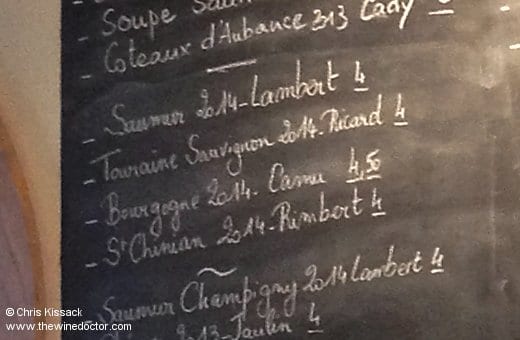 - Soupe
- Coteaux d'Aubance 2013 Cady
- Saumur 2014-Lambert 4
- Touraine Sauvignon 2014-Ricard 4
- Bourgogne 2014- Camu 4,50
- St Chinian 2014-Rimbert 4
- Saumur Champigny 2014 Lambert 4
2013-Taulin 4
© Chris Kissack
www.thewinedoctor.com